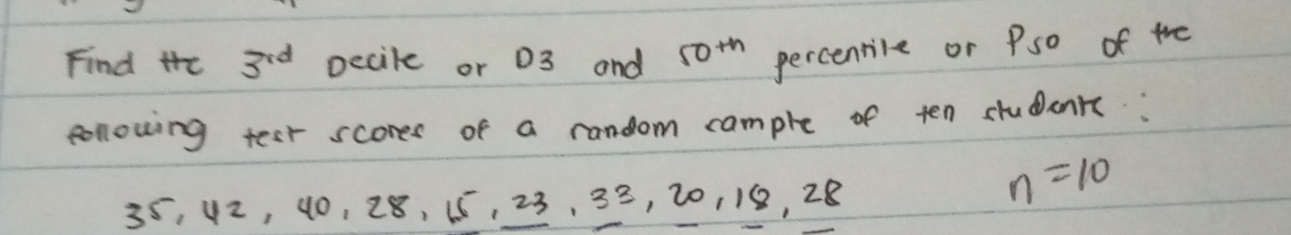 Find the 3rd Decile or D3 and 50th percentile or P50 of the
following test scores of a random sample of ten students :
35, 42, 40, 28, 15, 23, 33, 20, 18, 28 n = 10